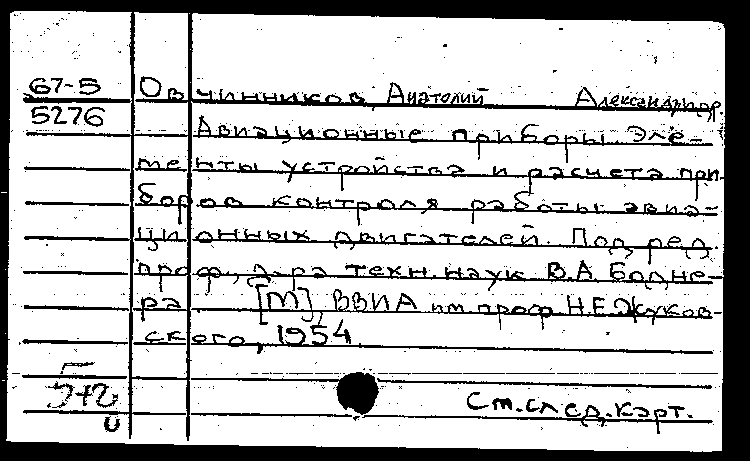 67-5 Овчинников, Анатолий Александр.
5276 Авиационные приборы. Эле-
менты устройства и расчета при
боров контроля работы авиа-
ционных двигателей. Под ред.
проф., д-ра техн. наук В.А. Бодне-
ра. [М], ВВИА им. проф. Н.Е. Жуков-
ского, 1954
См. след. карт.